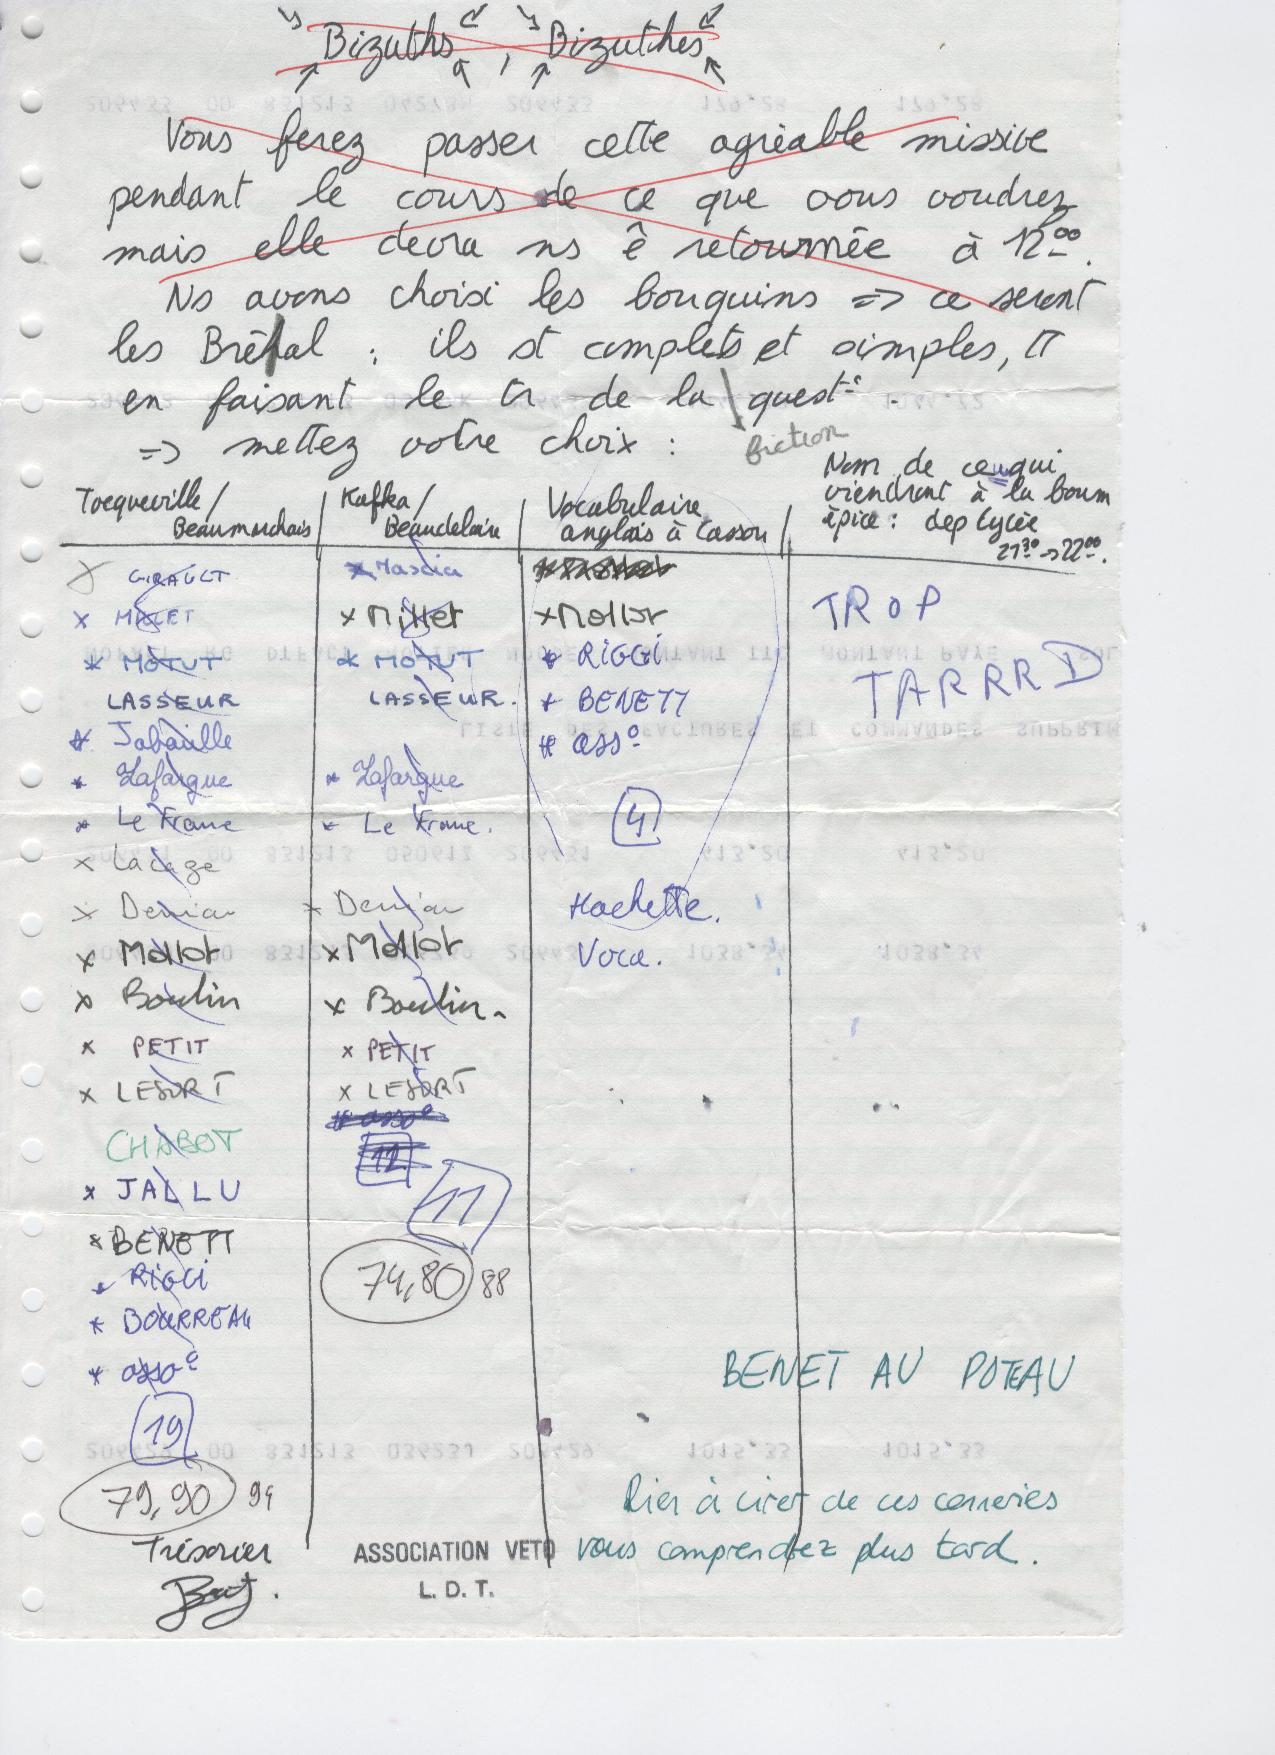 Bizuths, Bizuthes
Vous ferez passer cette agréable missive
pendant le cours de ce que vous voudrez
mais elle devra ns ê retournée à 12h00.
Ns avons choisi les bouquins => ce seront
les Bréhal : ils st complets et simples,
en faisant le tr de la quest°.
friction
=> mettez votre choix :
Tocqueville/ Beaumarchais
Kafka/ Beaudelaire
Vocabulaire anglais à Casson
Nom de ceux qui
viendront à la boum
épice : dep Lycée
21h30 -> 22h00.
GIRAULT
MILLET
* MOTUT
LASSEUR
* Jabouille
* Lafargue
* Le Franc
x Lacage
x Denian
x Mollot
x Boulin
x PETIT
x LESORT
CHABOT
x JALLU
* BENETT
* RIGGI
* BOURREAU
* asso°
19
79,90 94
Trésorier
* Mascia
x Millet
* MOTUT
LASSEUR.
* Lafargue
* Le Franc.
x Denian
x Mollot
x Boulin.
x PETIT
x LESORT
* asso°
12
11
74,80 88
x Mollot
* RIGGI
* BENETT
* asso°
4
Hachette.
Voca.
TROP
TARRRD
BENET AU POTEAU
Rien à cirer de ces conneries
vous comprendrez plus tard.
ASSOCIATION VETO
L. D. T.